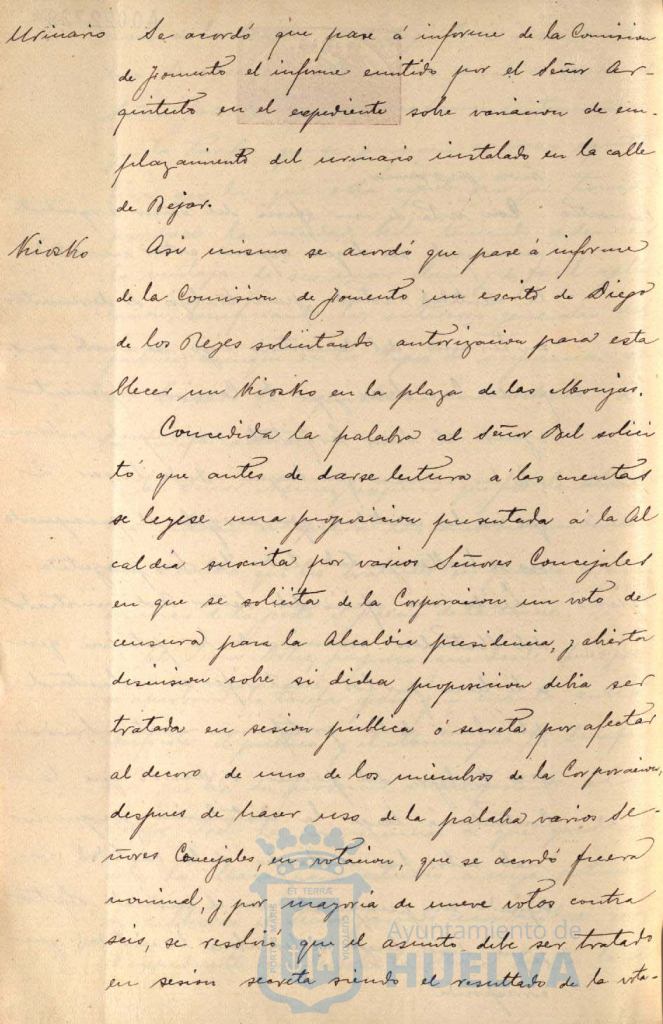 Urinario Se acordó que pase á informe de la Comision
de Fomento el informe emitido por el Señor Ar-
quitecto en el expediente sobre variacion de em-
plazamiento del urinario instalado en la calle
de Bejar.
Kiosko Asi mismo se acordó que pase á informe
de la Comision de Fomento un escrito de Diego
de los Reyes solicitando autorizacion para esta
blecer un Kiosko en la plaza de las Monjas.
Concedida la palabra al Señor Bel solici
tó que antes de darse lectura á las cuentas
se leyese una proposicion presentada á la Al
caldia suscrita por varios Señores Concejales
en que se solicita de la Corporacion un voto de
censura para la Alcaldia presidencia, y abierta
discusion sobre si dicha proposicion debia ser
tratada en sesion pública ó secreta por afectar
al decoro de uno de los miembros de la Corporacion,
despues de hacer uso de la palabra varios Se-
ñores Concejales, en votacion, que se acordó fuera
nominal, y por mayoria de nueve votos contra
seis, se resolvió que el asunto debe ser tratado
en sesion secreta siendo el resultado de la vota-
ET TERRÆ
PORTUS MARIS
CUSTODIA
Ayuntamiento de
HUELVA